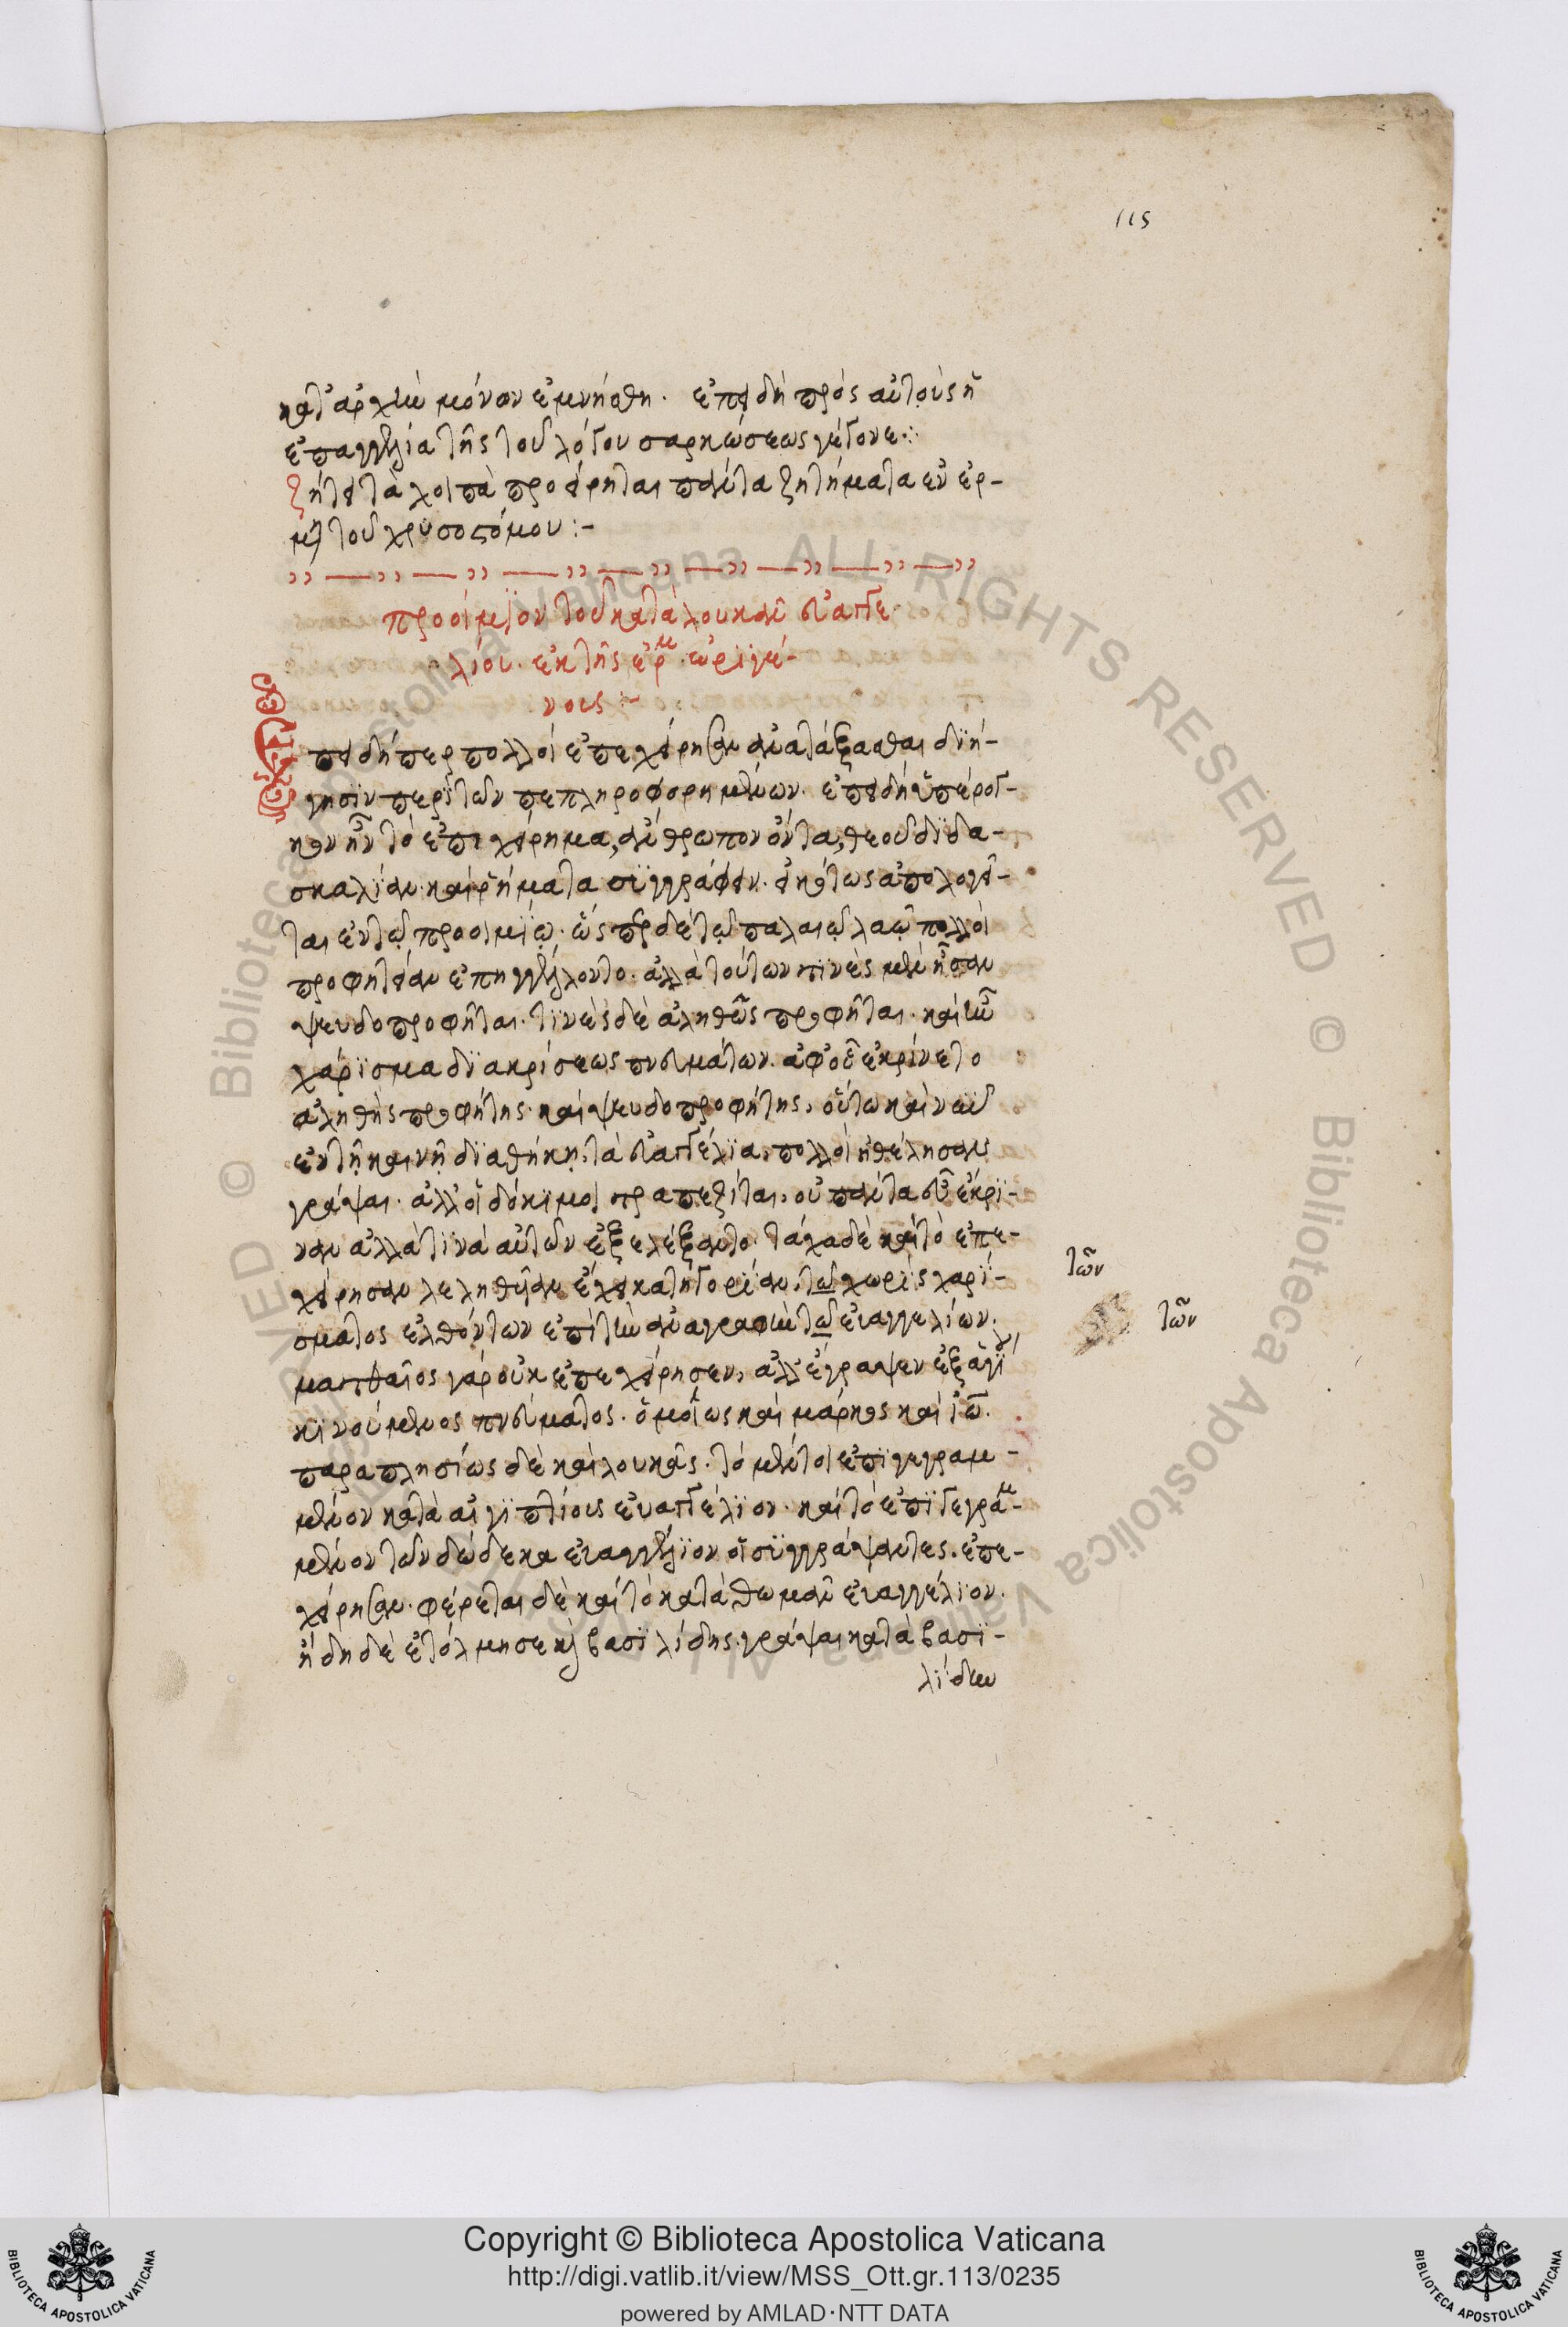 115
κατ' ἀρχὴν μόνον ἐμνήσθη. ἐπειδὴ πρὸς αὐτοὺς ἡ
ἐπαγγελία τῆς τοῦ λόγου σαρκώσεως γέγονε:
ζήτει τὰ λοιπὰ προείρηται πάντα ζητήματα ἐν ἑρ-
μη τοῦ χρυσοστόμου:-
προοίμϊον τοῦ κατὰ λουκᾶν εὐαγγε
λίου. ἐκ τῆς ἑρμ. ὠριγέ-
νους:-
Ἐπειδήπερ πολλοί ἐπεχείρησαν ἀνατάξασθαι διή-
γησϊν περὶ τῶν πεπληροφορημένων. ἐπειδὴ ὑπέρογ-
κον ἦν τὸ ἐπιχείρημα, ἄνθρωπον ὄντα, θεοῦ δϊδα-
σκαλίαν καὶ ῥήματα συγγράφειν. εἰκότως ἀπολογεῖ-
ται ἐν τῷ προοιμίῳ. ὥσπερ δὲ τῷ παλαιῷ λαῷ πολλοὶ
προφητείαν ἐπηγγέλλοντο. ἀλλὰ τούτων τϊνὲς μὲν ἦσαν
ψευδοπροφῆται. τϊνὲς δὲ ἀληθῶς προφῆται. καὶ ἦν
χάρϊσμα διακρίσεως πνευμάτων. ἀφ' οὗ ἐκρίνετο
ἀληθὴς προφήτης καὶ ψευδοπροφήτης, οὕτω καὶ νῦν
ἐν τῇ καινῇ διαθήκῃ, τὰ εὐαγγέλϊα, πολλοὶ ἠθέλησαν
γράψαι. ἀλλ' οἱ δόκϊμοι τραπεζίται, οὐ πάντα ἐνέκρϊ-
ναν ἀλλὰ τϊνὰ αὐτῶν ἐξελέξαντο. τάχα δὲ καὶ τὸ ἐπε-
χείρησαν λεληθυῖαν ἔχει κατηγορίαν, τῶ χωρὶς χαρί-
τῶν
σματος ἐλθόντων ἐπὶ τὴν ἀναγραφὴν τῶ εὐαγγελίων.
τῶν
ματθαῖος γὰρ οὐκ ἐπεχείρησεν, ἀλλ' ἔγραψεν ἐξ ἁγί
κϊνούμενος πνεύματος. ὁμοίως καὶ μάρκος καὶ ἰω.
παραπλησίως δὲ καὶ λουκᾶς. τὸ μέντοι ἐπϊγεγραμ-
μένον κατὰ αἰγϊπτίους εὐαγγέλϊον. καὶ τὸ ἐπϊγεγραμ-
μένον τῶν δώδεκα εὐαγγέλϊον οἱ συγγράψαντες. ἐπε-
χείρησαν. φέρεται δὲ καὶ τὸ κατὰ θωμᾶν εὐαγγέλϊον.
ἤδη δὲ ἐτόλμησε καὶ βασϊλίδης, γράψαι κατὰ βασϊ-
λίδην
Copyright © Biblioteca Apostolica Vaticana
http://digi.vatlib.it/view/MSS_Ott.gr.113/0235
powered by AMLAD·NTT DATA